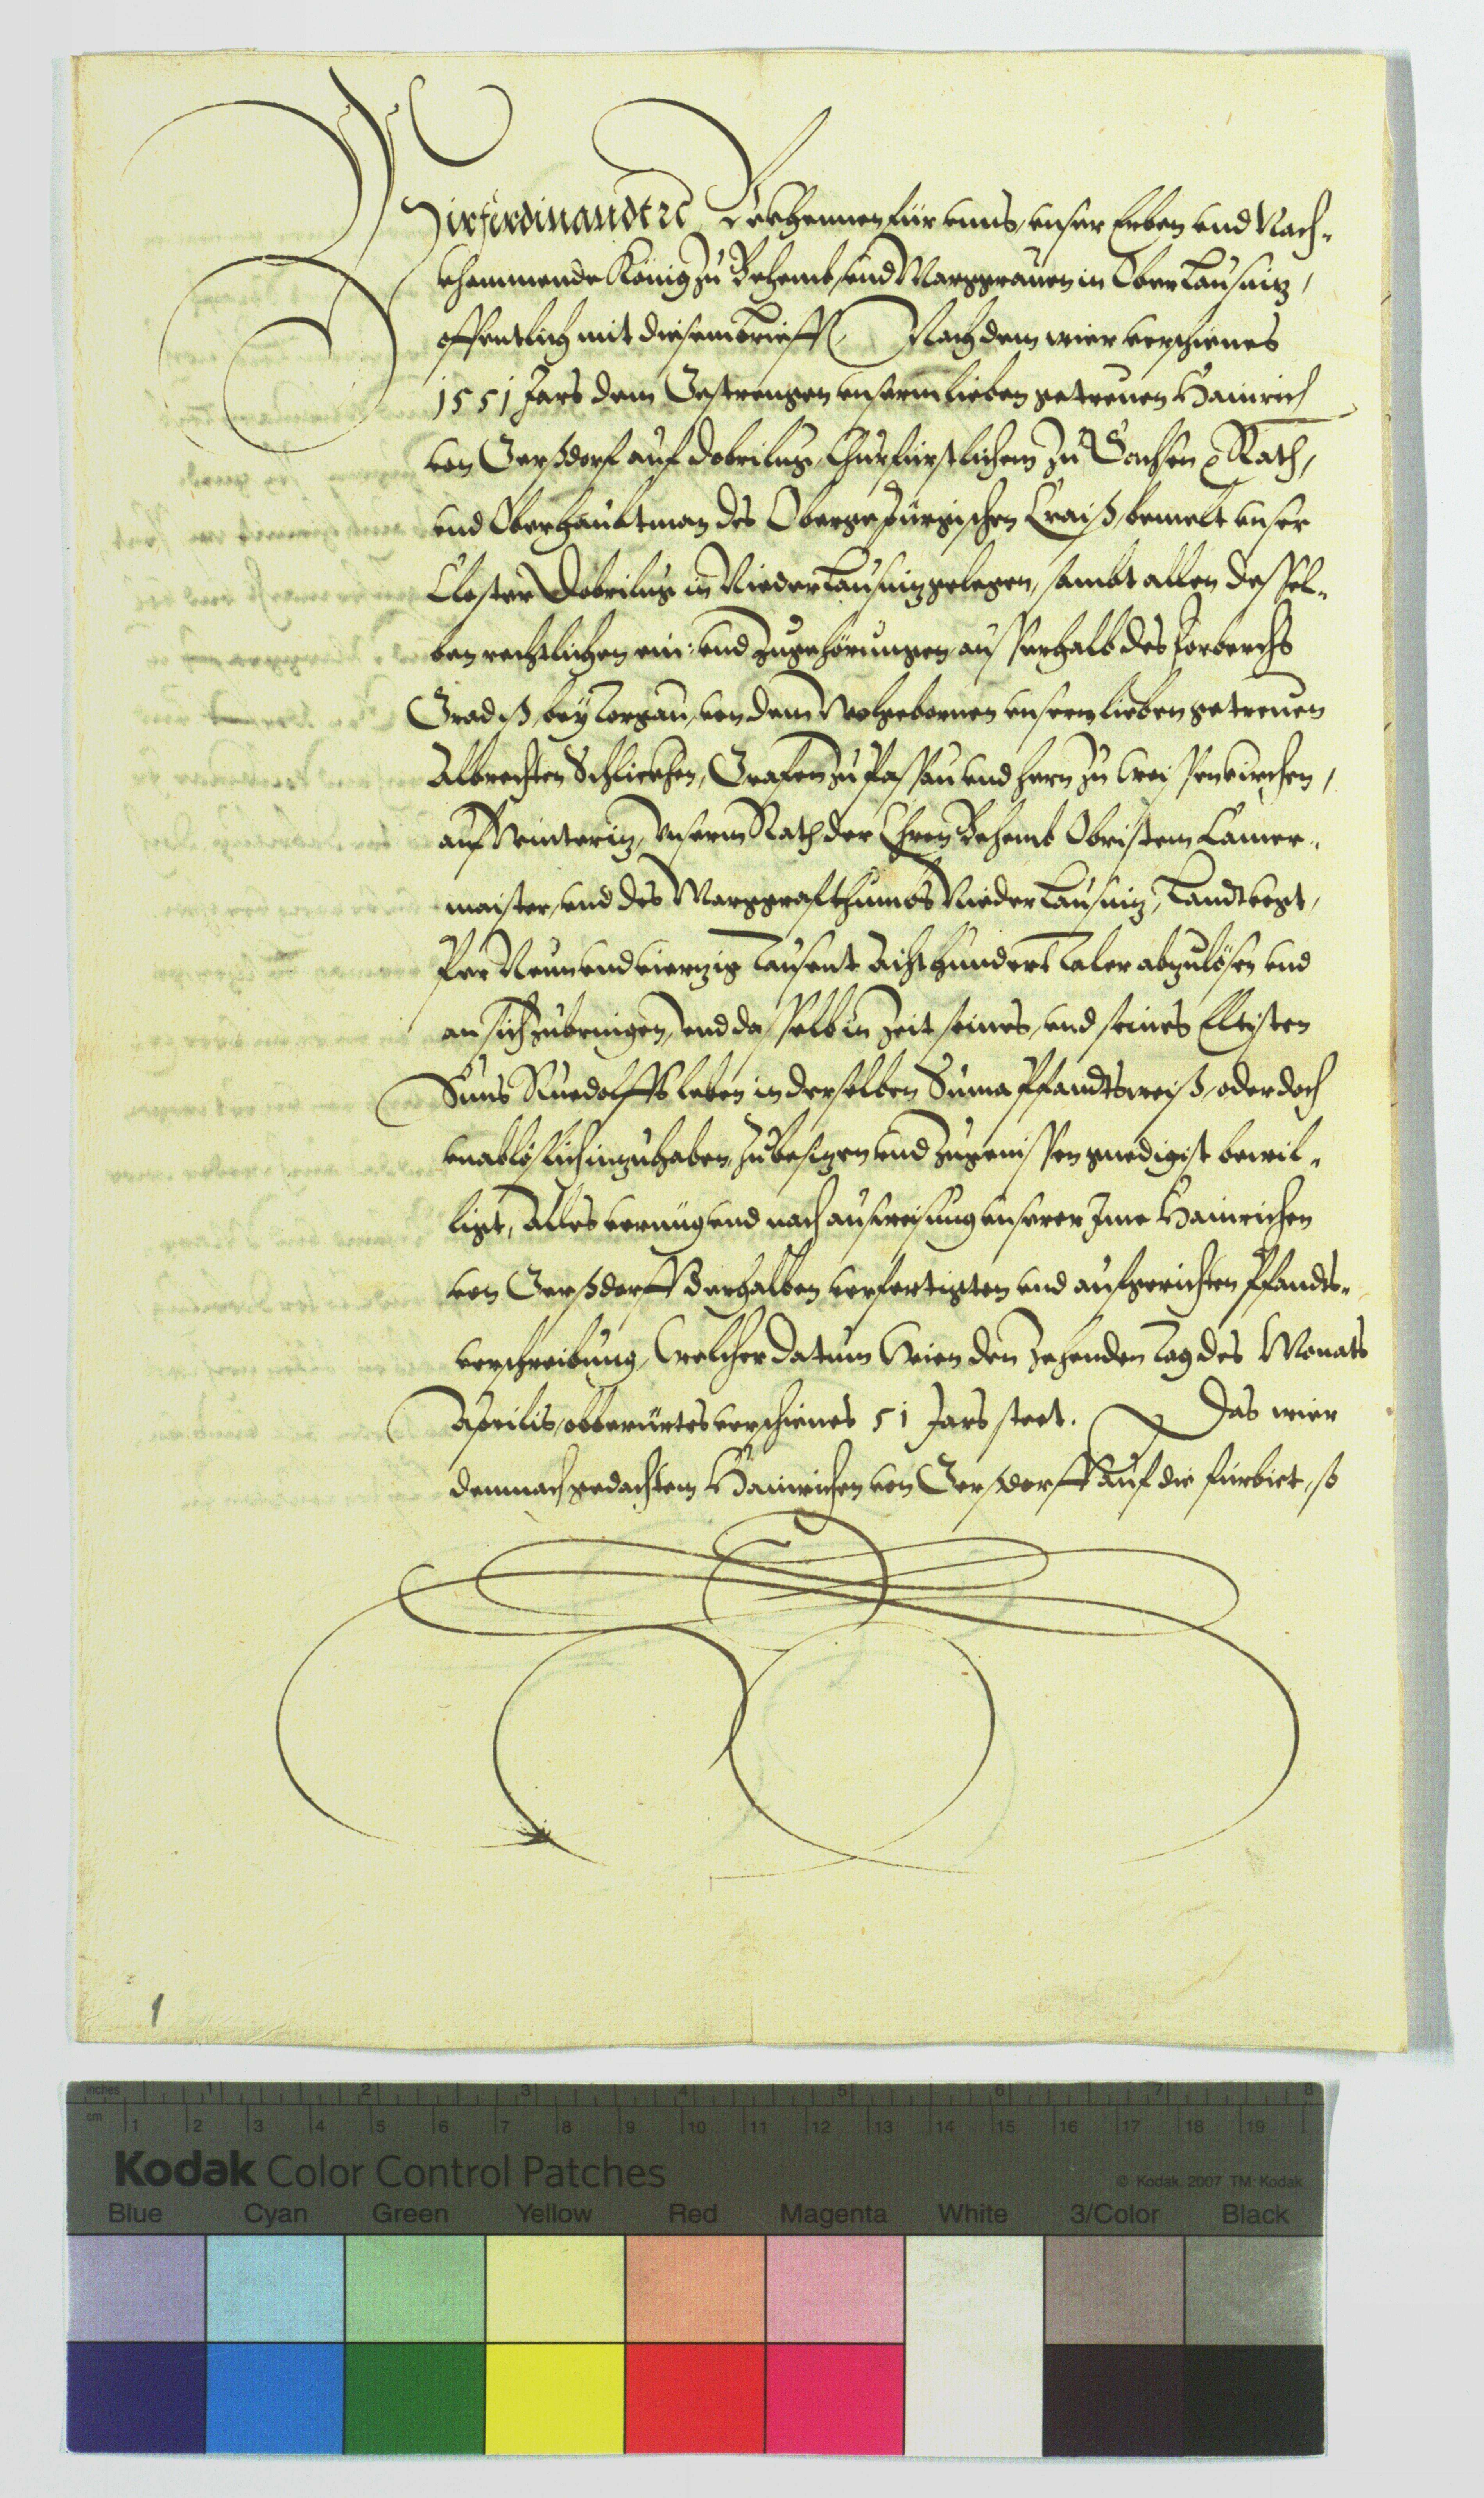 Wir Ferdinandt etc Bekhennen für unns, unser Erben und Nach-
khommende König zu Behemb, und Marggrauen in Ober Lausniz,
offentlich mit diesem brieff, Nachdem wier verschienes
1551 Jars dem Gestrengen unserm lieben getreuen Hainrich
von Gerßdorf auf Dobrilug, Churfürstlichem zu Sachsen etc Rath,
und Oberhaubtman des Obergepürgischen Craiß, bemelt unser
Closter Dobrilug in Nieder Lausniz gelegen, sambt allen dessel-
ben rechtlichen ein: und zugehörungen, ausserhalb des forberchs
Gradiß, bey Torgau, von dem Wolgebornen unserm lieben getreuen
Albrechten Schlickhen, Grafen zu Passau und herrn zu Weissenkirchen,
auf Winteriz, unserm Rath der Chron Behemb Obristem Camer-
maister, und des Marggrafthumbs Nieder Lausniz, Landtvogt,
Per Neunundvierzig Tausent Achthundert Taler abzulösen und
an sich zubringen, und dasselb in Zeit seines, und seines Eltisten
Suns Ruedolffs leben in derselben Suma Pfandtsweiß, oder doch
unablöslich inzuhaben, zubesizen und zugeniessen gnedigist bewil-
ligt, Alles vermüg und nach ausweisung unserer Ime Hainrichen
von Gerßdorff derhalben verfertigten und aufgerichten Pfandts-
verschreibung, Welcher datum Wien den Zehenden tag des Monats
Aprilis, obberürtes verschienes 51 Jars steet. Das wier
demnach gedachtem Hainrichen von Gerßdorff auf die fürbiet, so
1
inches 1 2 3 4 5 6 7 8
cm 1 2 3 4 5 6 7 8 9 10 11 12 13 14 15 16 17 18 19
Kodak Color Control Patches
© Kodak, 2007 TM: Kodak
Blue Cyan Green Yellow Red Magenta White 3/Color Black